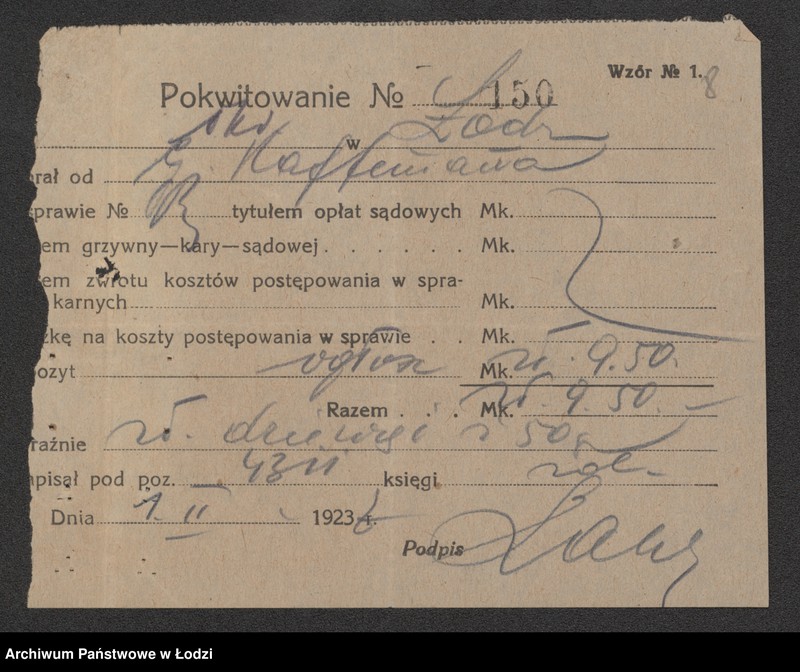 Wzór № 1. 8
Pokwitowanie № 150
w Łodzi
rał od Kaftemana
prawie № tytułem opłat sądowych Mk.
em grzywny—kary—sądowej . . . . . . Mk.
em zwrotu kosztów postępowania w spra-
karnych Mk.
zkę na koszty postępowania w sprawie . . Mk.
ozyt ogłosz Mk. zł. 9.50.
Razem . . . Mk. zł. 9.50.—
raźnie zł. dziewięć i 50
apisał pod poz. 4311 księgi
Dnia 1 II 1923 r.
Podpis
Archiwum Państwowe w Łodzi